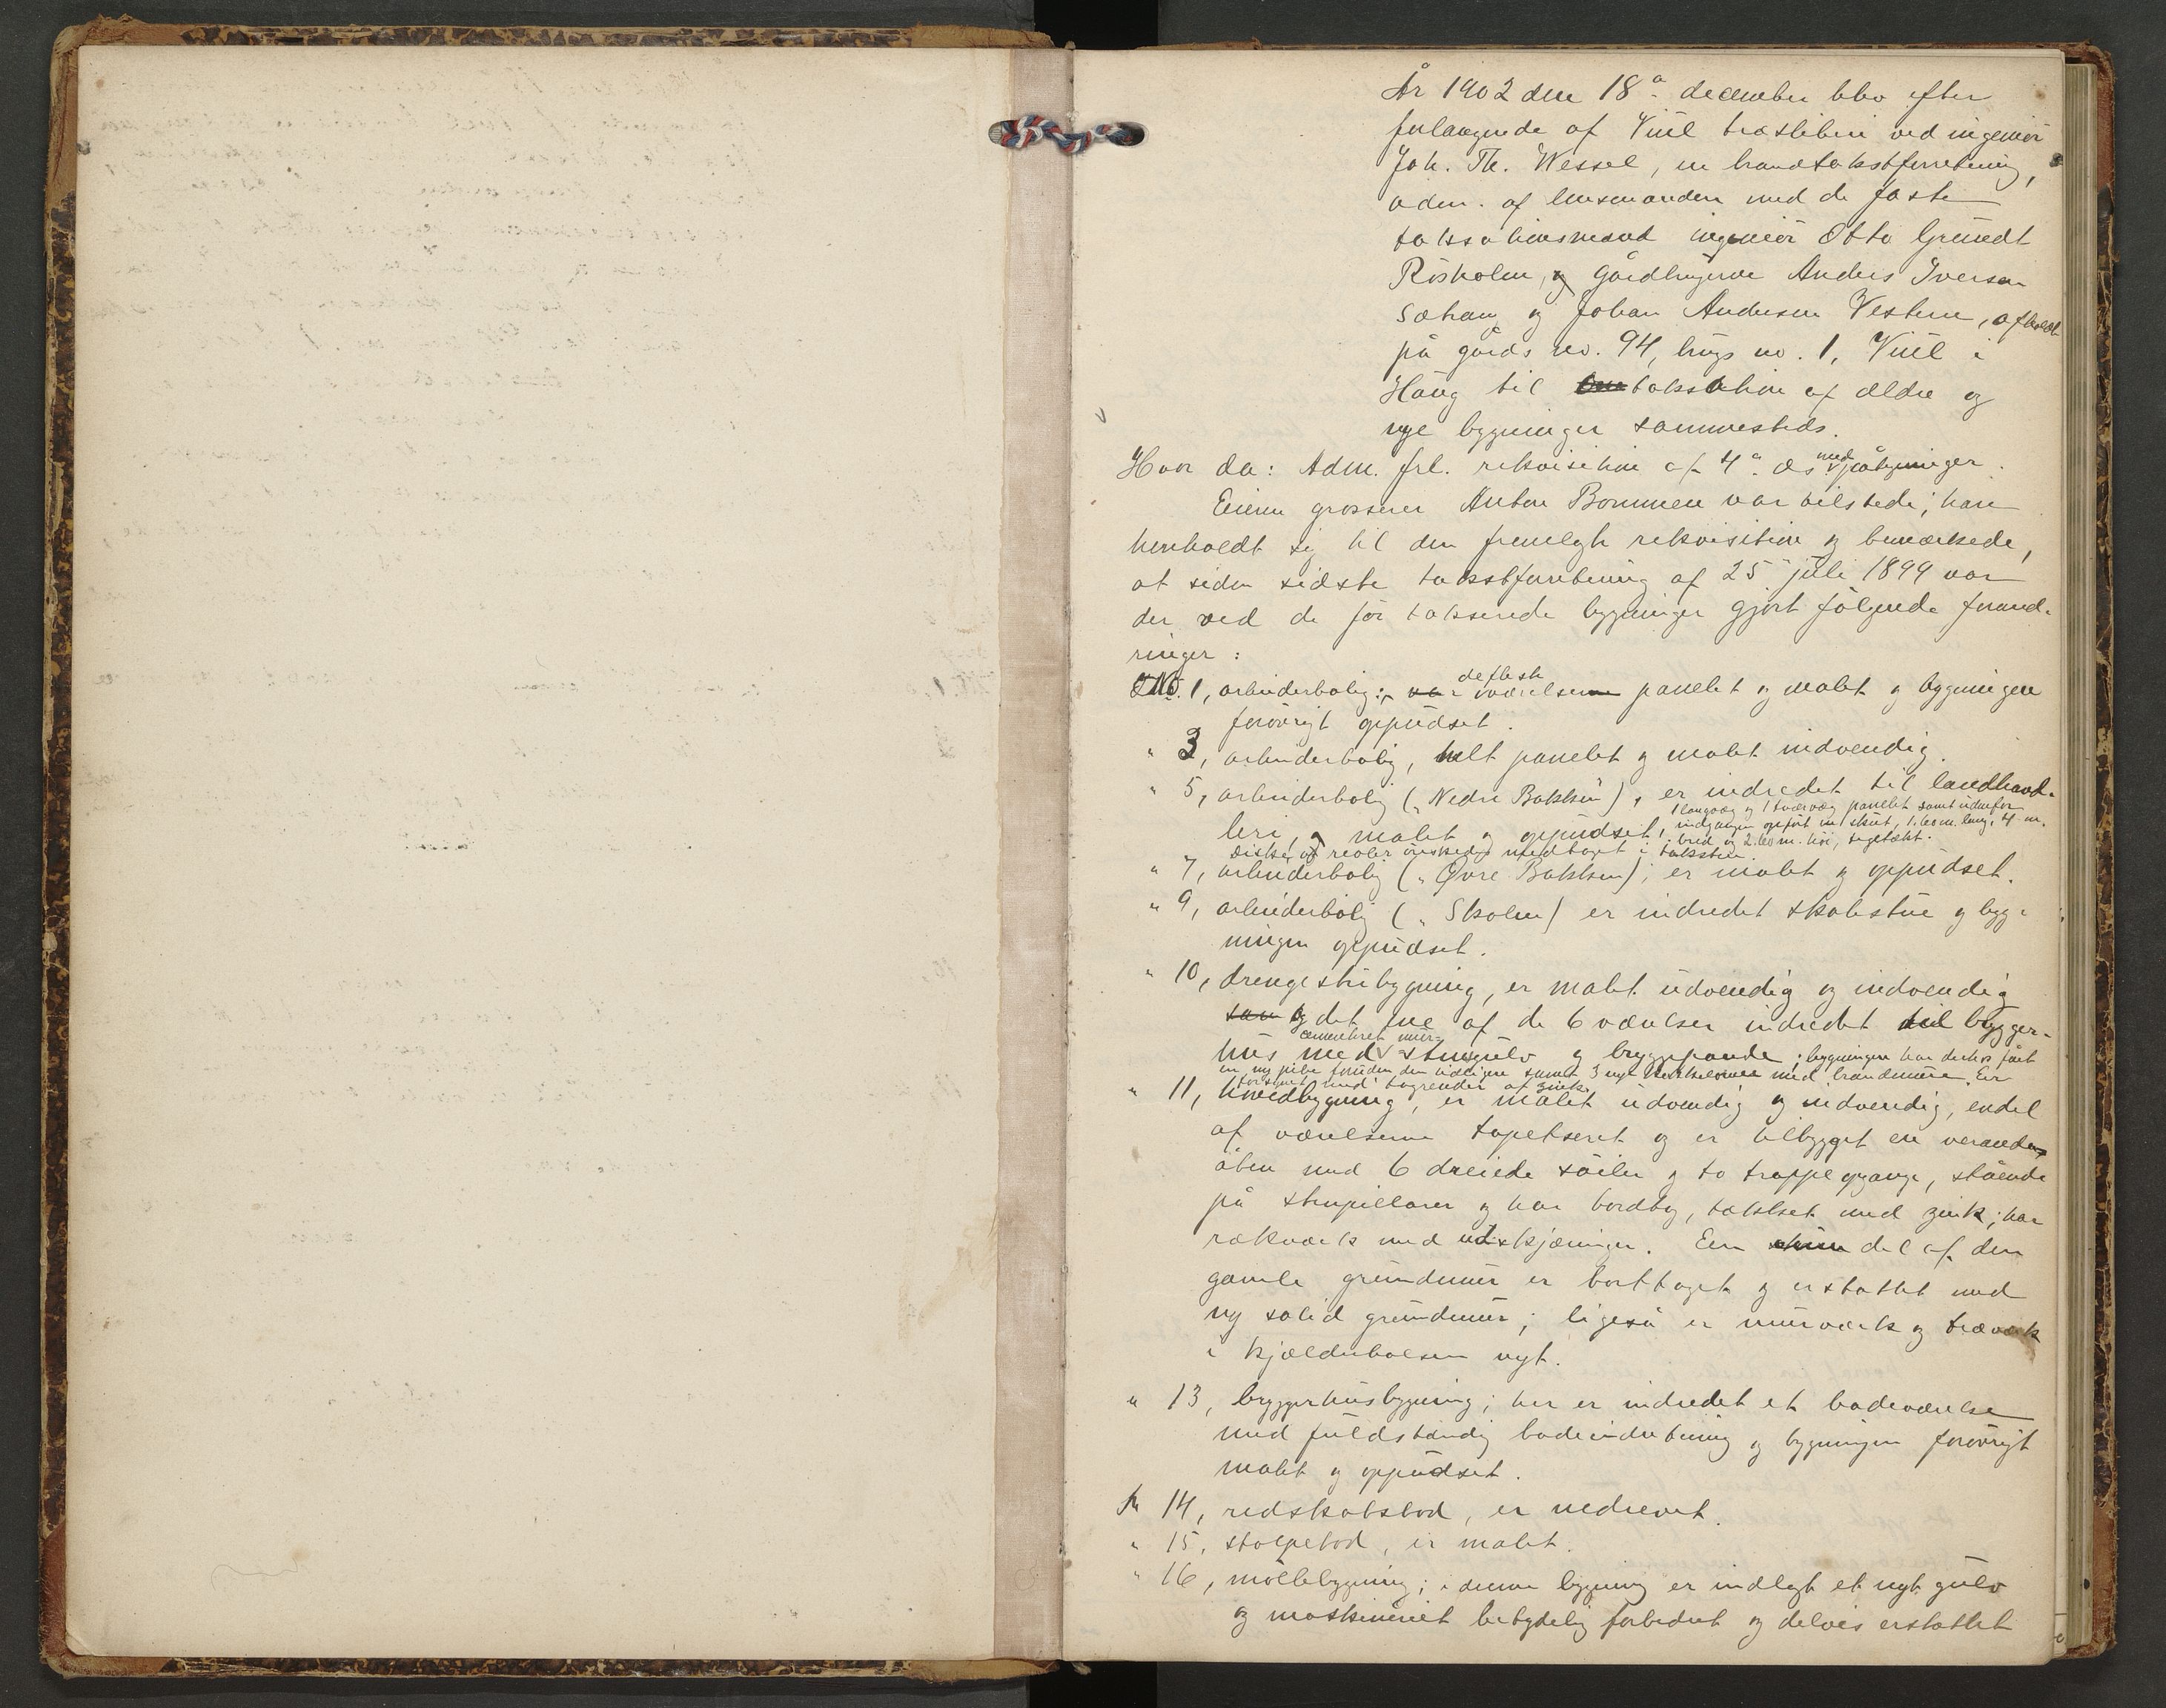 År 1902 den 18de december blev efter
forlangende af Viul træsliberi ved ingeniør
Joh. Th. Wessel, en brandtakstforretning,
adm. af lensmanden med de faste
taksationsmænd ingeniør Otto Gründt
Rösholm, og gårdbrugerne Anders Iversen
Sætrang og Johan Andersen Vestern, afholdt
på gårds no. 94, brugs no. 1, Viul i
Haug til taksation af ældre og
nye bygninger sammesteds.
Hvor da: Adm. frl. rekvisition af 4de ds med påtegninger.
Eieren grosserer Anton Bommen var tilstede; han
henholdt sig til den fremlagte rekvisition og bemærkede,
at siden sidste takstforretning af 25 juli 1899 var
der ved de før takserede bygninger gjort følgende forand-
ringer:
No. 1, arbeiderbolig: de fleste værelser panelet og malet og bygningen
forøvrigt oppudset.
" 3, arbeiderbolig, helt panelet og malet indvendig.
" 5, arbeiderbolig ("Nedre Bakken"), er indredet til landhand-
leri, og malet og oppudset, 1 langvæg og 1 tværvæg panelet samt udenfor
indgangen opført en skut, 1.60 m. lang, 4 m.
bred og 2.60 m. høi, tegltækt.
Diske og reoler ønskedes medtaget i taksten.
" 7, arbeiderbolig ("Øvre Bakken); er malet og oppudset.
" 9, arbeiderbolig ("Skolen) er indredet skolestue og byg-
ningen oppudset.
" 10, drengestubygning, er malet udvendig og indvendig
og det ene af de 6 værelser indredet til brygger-
hus med cementeret mur= stengulv og bryggepande; bygningen har derhos fået
en ny pibe foruden den tidligere samt 3 nye med brandmure. Er
forsynet med tagrender af zink.
" 11, hovedbygning, er malet udvendig og indvendig, endel
af værelserne tapetseret og er tilbygget en veranda,
åben med 6 dreiede søiler og to trappeopgange, stående
på stenpillarer og har bordtag, tækket med zink; har
rækværk med udskjæringer. En del af den
gamle grundmur er borttaget og erstattet med
ny solid grundmur; ligeså er murværk og træværk
i kjælderhalsen nyt.
" 13, bryggerhusbygning; her er indredet et badeværelse
med fuldstændig badeindretning og bygningen forøvrigt
malet og oppudset.
" 14, redskabsbod, er nedrevet.
" 15, stolpebod, er malet.
" 16, møllebygning; i denne bygning er indlagt et nyt gulv
og maskineriet betydelig forbedret og delvis erstattet